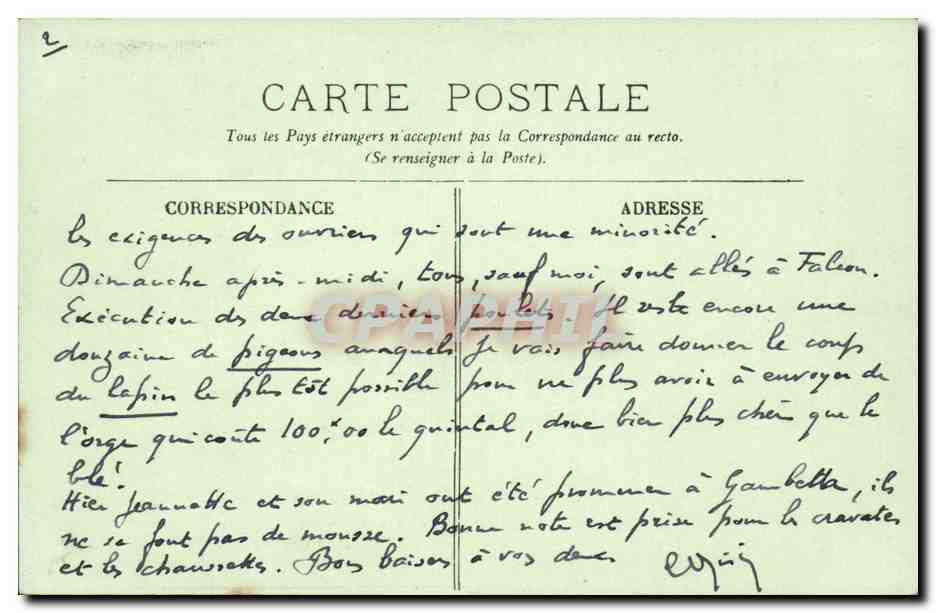 2
CARTE POSTALE
Tous les Pays étrangers n'acceptent pas la Correspondance au recto.
(Se renseigner à la Poste).
CORRESPONDANCE
ADRESSE
les exigences des ouvriers qui sont une minorité.
Dimanche après-midi, tous, sauf moi, sont allés à Falcon.
Exécution des deux derniers poulets. Il reste encore une
douzaine de pigeons auxquels je vais faire donner le coup
du lapin le plus tôt possible pour ne plus avoir à envoyer de
l'orge qui coûte 100,00 le quintal, donc bien plus cher que le
blé!
Hier Jeannette et son mari ont été promener à Gambetta, ils
ne se font pas de mousse. Bonne note est prise pour la cravate
et les chaussettes. Bons baisers à vos deux
CPAPHIL